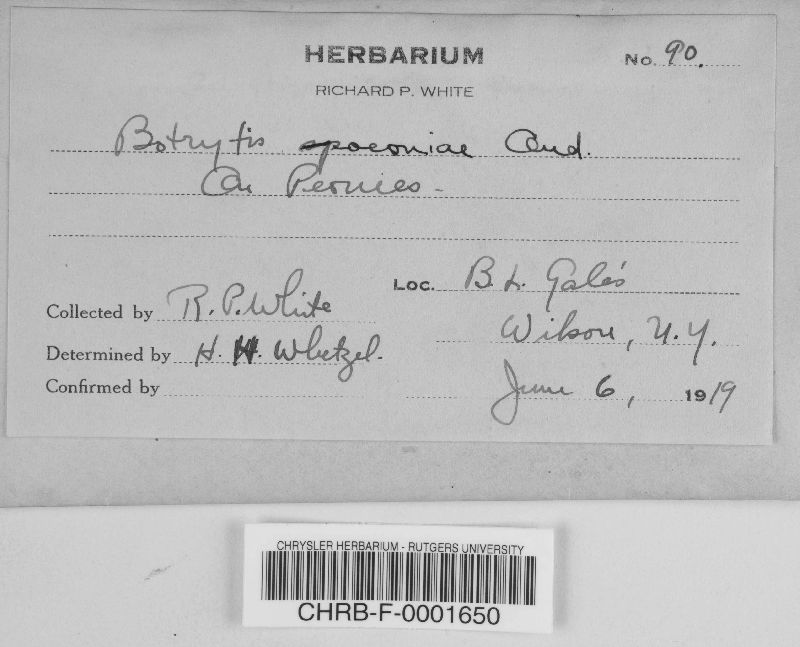 HERBARIUM
No. 90.
RICHARD P. WHITE
Botrytis paeoniae Oud.
On Peonies -
Loc. B. L. Gale's
Collected by R. P. White
Wilson, N.Y.
Determined by H. H. Whetzel.
Confirmed by
June 6, 1919
CHRYSLER HERBARIUM - RUTGERS UNIVERSITY
CHRB-F-0001650